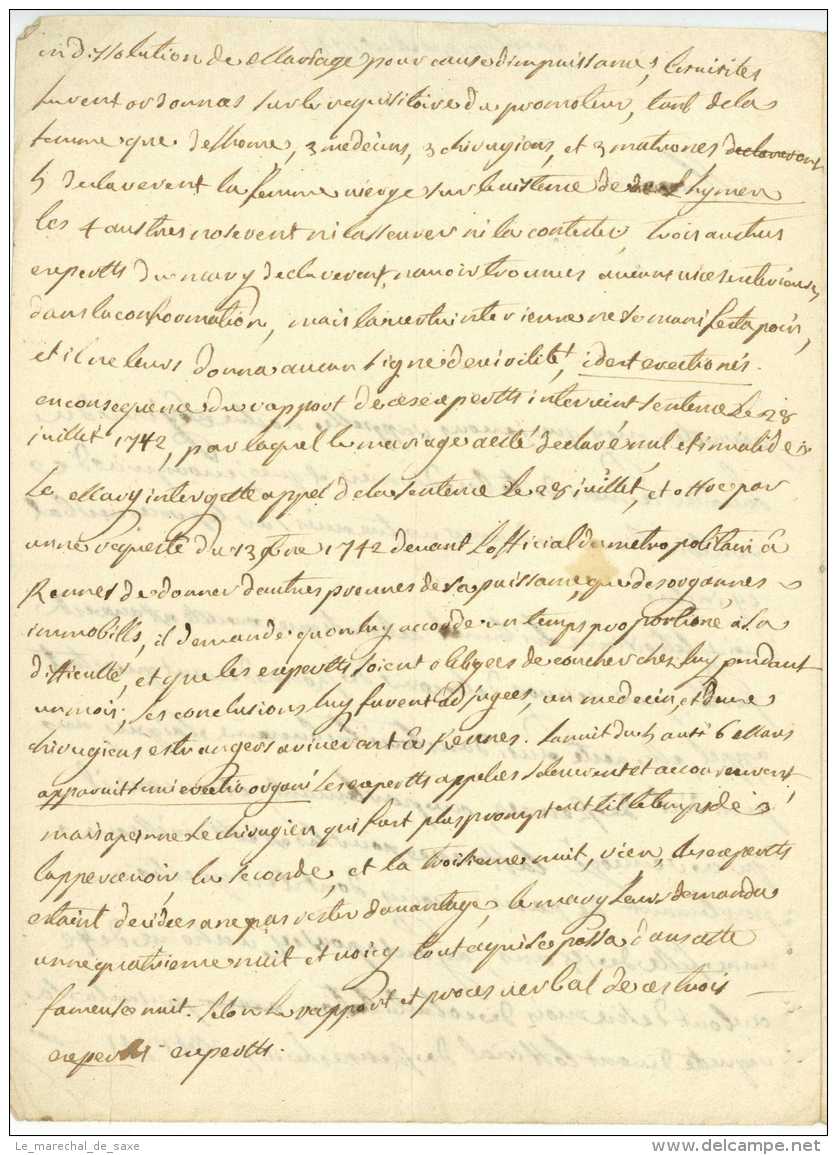 en dissolution de Mariage pour cause dimpuissance, les visites
furent ordonnés sur le requisitoire du promoteur, tant de la
femme que de lhome, 3 medecins, 3 chirugiens, et 3 matrones declarerent
5 declarerent la femme vierge sur le sisteme de lhymen
les 4 austres noserent ni lasseurer ni la contester, trois austres
experts du mary declarerent, navoir trouvés aucuns vices interieurs
dans la conformation, mais la vertu interienne ne se manifesta point,
et il ne leurs donna aucun signe de virilité, idest erectionis.
en consequence du rapport de ces experts intervint sentence le 28
juillet 1742, par laquel le mariage a esté declaré nul et invalide
Le Mary intergette appel de la sentence le 28 juillet, et offre par
unne requeste du 13 9bre 1742 devant lofficial du metropolitain à
Rennes de donner dautres preuves de sa puissance, que des organnes
immobills, il demande quon luy accorde un temps proportioné a la
difficulté, et que les experts soient obligees de coucher chez luy pendant
un mois, ses conclusions luy furent adjugées, un medecin, et deux
chirugiens estrangers arriverent à Rennes. la nuit du 5 au 6 Mars
apparuit semierectio organi les experts appelés se leverent et accoururent
mais a penne le chirugien qui fut plus prompt eut til le temps de
lappercevoir, la seconde, et la troisieme nuit, rien, les experts
estaint decidées a ne pas rester davantage, le mary leurs demanda
unne quatrieme nuit et voicy tout ce qui se passa dans cette
fameuse nuit. selon le rapport et proces verbal de ces trois
experts experts.
Le_marechal_de_saxe
www.delcampe.net